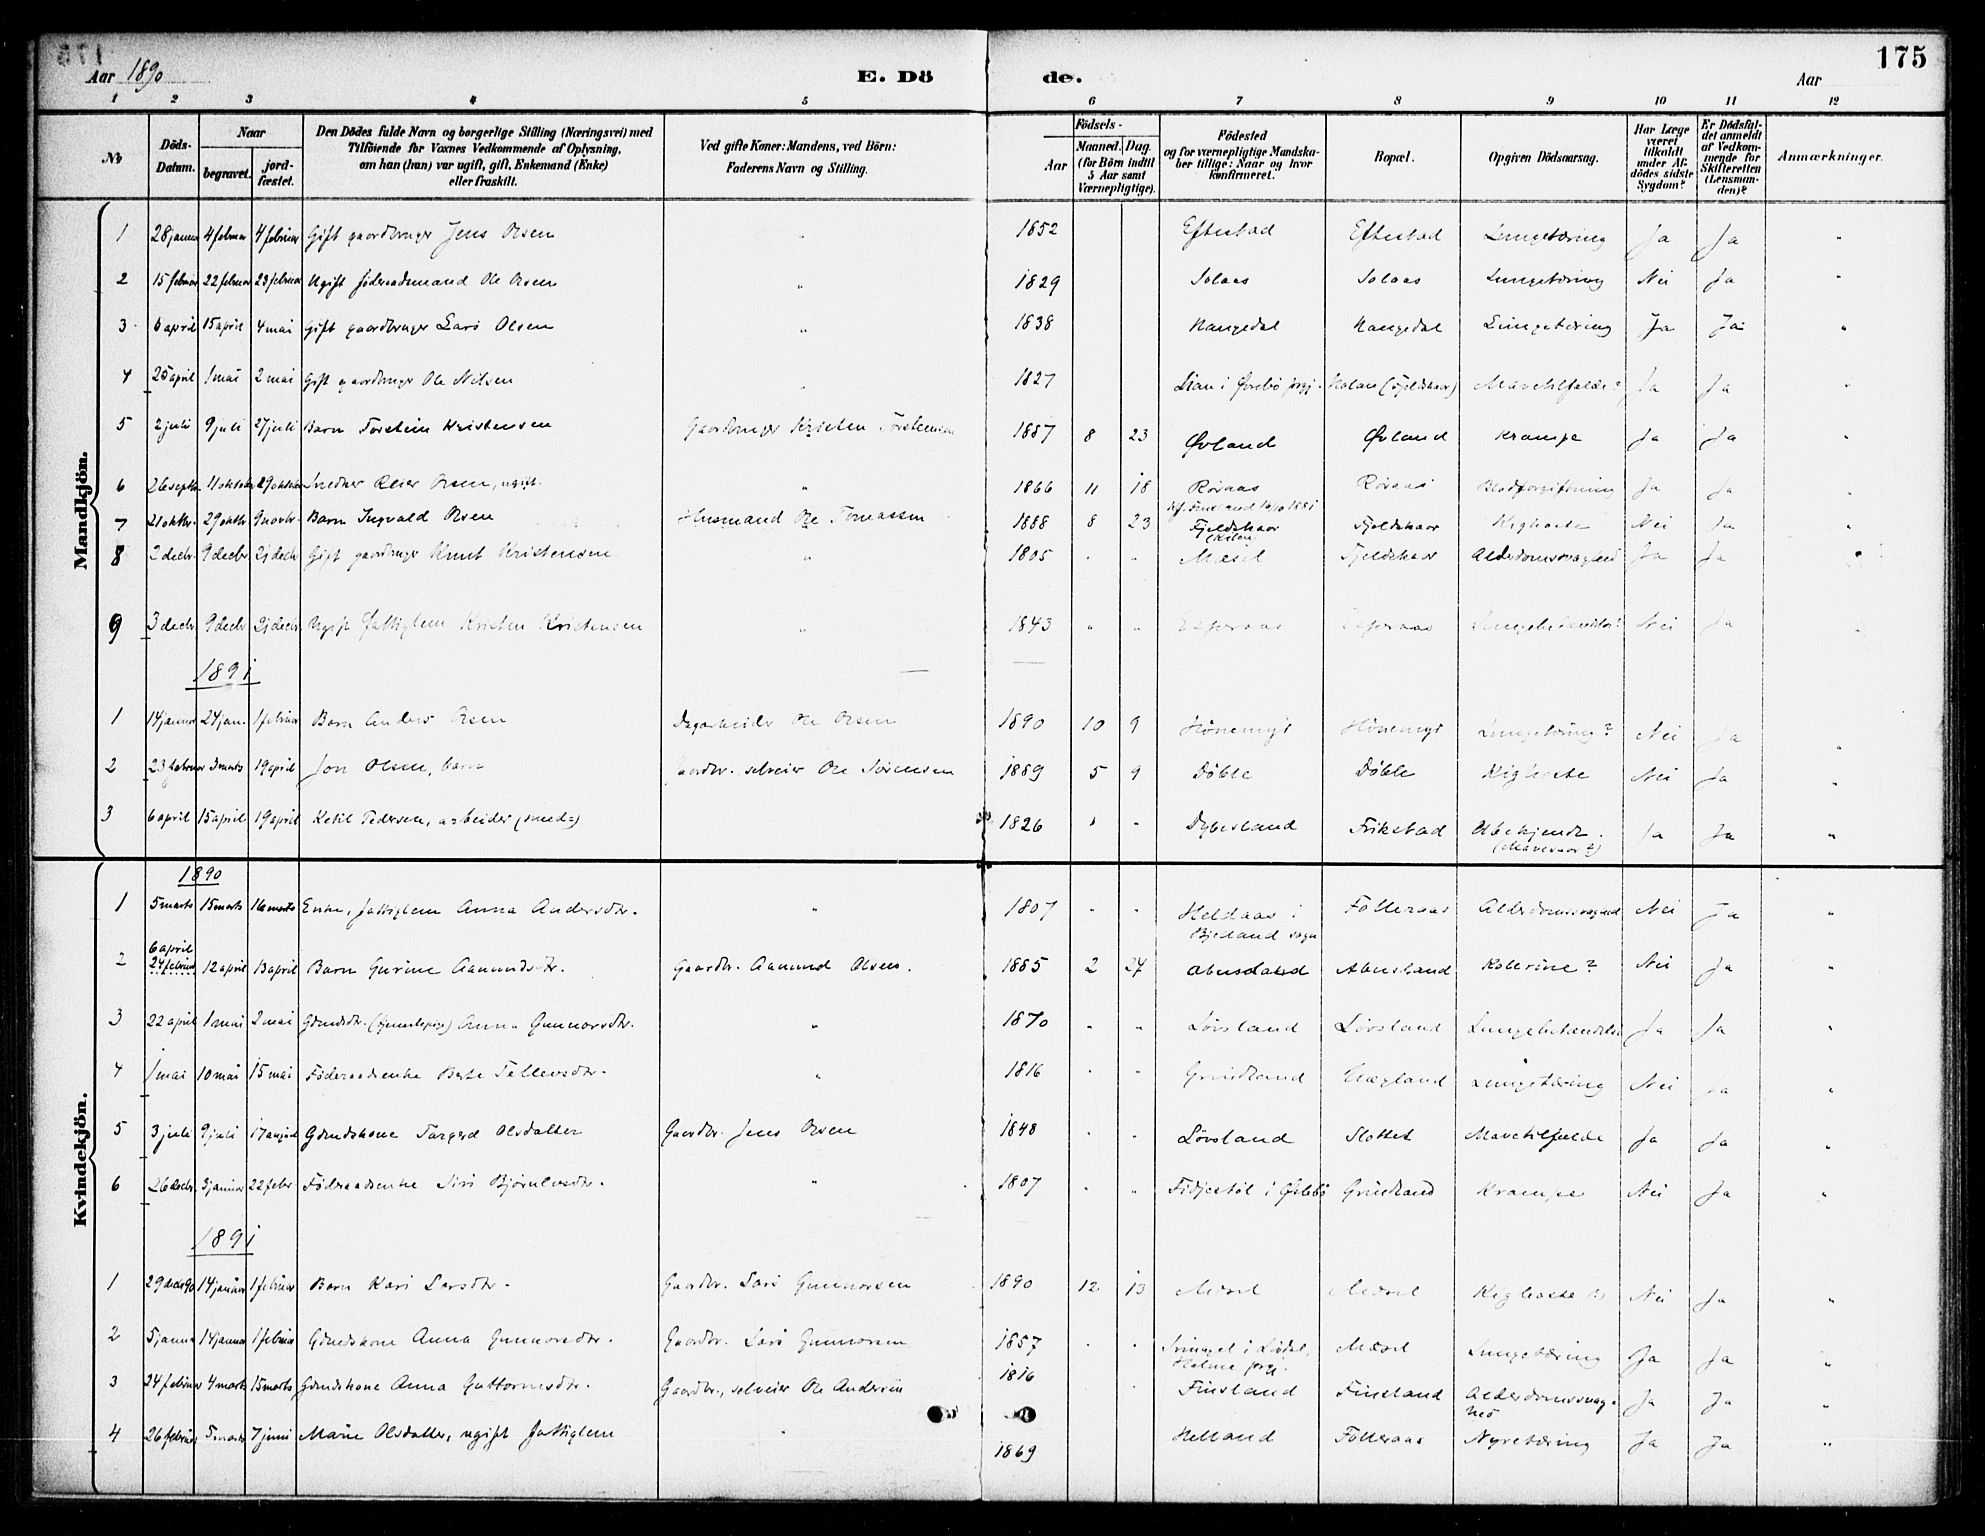 175
Aar 1890 E. Dö de. Aar
1 2 3 4 5 6 7 8 9 10 11 12
No
Döds-Datum.
Naar
begravet.
jord-fæstet.
Den Dödes fulde Navn og borgerlige Stilling (Næringsvei) med
Tilföiende for Voxnes Vedkommende af Oplysning,
om han (hun) var ugift, gift, Enkemand (Enke)
eller fraskilt.
Ved gifte Koner: Mandens, ved Börn:
Faderens Navn og Stilling.
Födsels-
Aar
Maaned. Dag.
(for Börn indtil
5 Aar samt
Værnepligtige).
Födested
og for værnepligtige Mandska-
ber tillige: Naar og hvor
konfirmeret.
Bopæl.
Opgiven Dödsaarsag.
Har Læge
været
tilkaldt
under Af-
dödes sidste
Sygdom?
Er Dödsfal-
det anmeldt
af Vedkom-
mende for
Skifteretten
(Lensman-
den)?
Anmærkninger.
Mandkjön.
1 28 januar 4 februar 4 februar Gift gaardbruger Jens Olsen " 1852 Eftestad Eftestad Lungetæring Ja Ja "
2 15 februar 22 februar 23 februar Ugift föderaadsmand Ole Olsen " 1829 Solaas Solaas Lungetæring Nei Ja "
3 6 april 15 april 4 mai Gift gaardbruger Lars Olsen " 1838 Haugedal Haugedal Lungetæring Ja Ja "
4 25 april 1 mai 2 mai Gift gaardbruger Ole Nilsen " 1827 Lian i Øvrebö prgj. (Fjeldskaar) Mavetilfælde? Ja Ja "
5 2 juli 9 juli 27 juli Barn Torstein Kristensen Gaardbruger Kristen Torstensen 1887 8 23 Øvland Øvland Krampe Ja Ja "
6 26 septbr. 11 oktober 29 oktober Snedker Reier Olsen, ugift. " 1866 11 18 Röiaas Röiaas Blodforgiftning Ja Ja "
kf. Finsland 1881
7 21 oktbr. 29 oktbr. 9 novbr. Barn Ingvald Olsen Husmand Ole Tomassen 1888 8 23 Fjeldskaar Fjeldskaar Kighoste Nei Ja "
(Kilen)
8 2 decbr. 9 decbr 21 decbr Gift gaardbruger Knut Kristensen " 1805 " " Mæsel Fjeldskaar Alderdomssvaghed Ja Ja "
9 3 decbr 9 decbr 21 decbr. Ugift Fattiglem Kristen Kristensen " 1843 " " Nei Ja "
1891
1 14 januar 24 jan. 1 februar Barn Anders Olsen Dagarbeider Ole Olsen 1890 10 9 Hönemyr Hönemyr Lungetæring? Nei Ja "
2 23 februar 3 marts 19 april Jon Olsen, barn Gaardbr. selveier Ole Sörensen 1889 5 9 Döble Döble Kighoste Nei Ja "
3 6 april 15 april 19 april Ketil Pedersen, arbeider (smed) 1826 " " Dybesland Frikstad Ubekjendt. Ja Ja "
Kvindekjön.
1890
1 5 marts 15 marts 16 marts Enke, fattiglem Anna Andersdtr. " 1807 " " Heldaas i Fölleraas Alderdomssvaghed Nei Ja "
Bjelland sogn
6 april
2 24 februar 12 april 13 april Barn Gurine Aanundsdtr. Gaardbr. Aanund Olsen. 1885 2 24 Abusland Abusland Kolerine? Nei Ja "
3 22 april 1 mai 2 mai Gdmdsdtr. (tjenestepige) Anna Gunnarsdtr. " 1870 " " Lövsland Lövsland Lungebetændelse Ja Ja "
4 1 mai 10 mai 15 mai Föderaadsenke Berte Tellevsdtr. " 1816 " " Grindland Hægland Lungetæring Nei Ja "
5 3 juli 9 juli 17 august Gdmdskone Torgerd Olsdatter Gaardbr. Jens Olsen 1848 " " Lövsland Slottet Mavetilfælde Ja Ja "
6 26 decbr. 3 januar 22 febr Föderaadsenke Siri Björnulvsdtr. " 1807 " " Fidjestöl i Øvrebö Grindland Krampe Nei Ja "
1891
1 29 decbr 90 14 januar 1 februar Barn Kari Larsdtr. Gaardbr. Lars Gunnarsen 1890 12 13 Mæsel Mæsel Kighoste Nei Ja "
2 5 januar 14 januar 1 februar Gdmdskone Anna Gunnarsdtr. Gaardbr. Lars Gunnarsen 1857 " " Mæsel Lungetæring Ja Ja "
Holme prgj.
3 24 februar 4 marts 15 marts Gdmdskone Anna Guttormsdtr. Gaardbr., selveier Ole Andersen 1816 " " Finsland Finsland Alderdomssvag- Ja Ja "
hed
4 26 februar 5 marts 7 juni Marie Olsdatter, ugift Fattiglem " 1869 Helland Fölleraas Nyretæring Ja Ja "